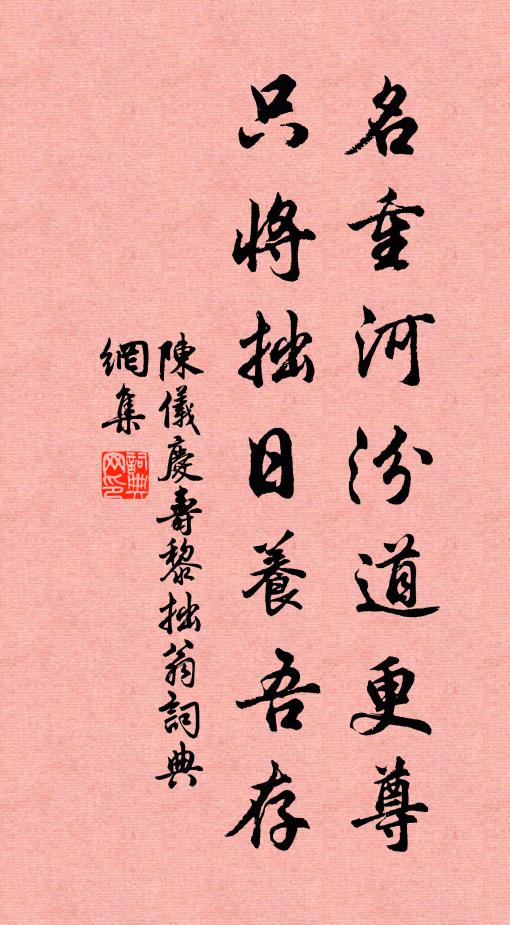 名重河汾道更尊
只將拙日養吾存
陳儀慶壽黎拙翁詞典
網集
詞典网印